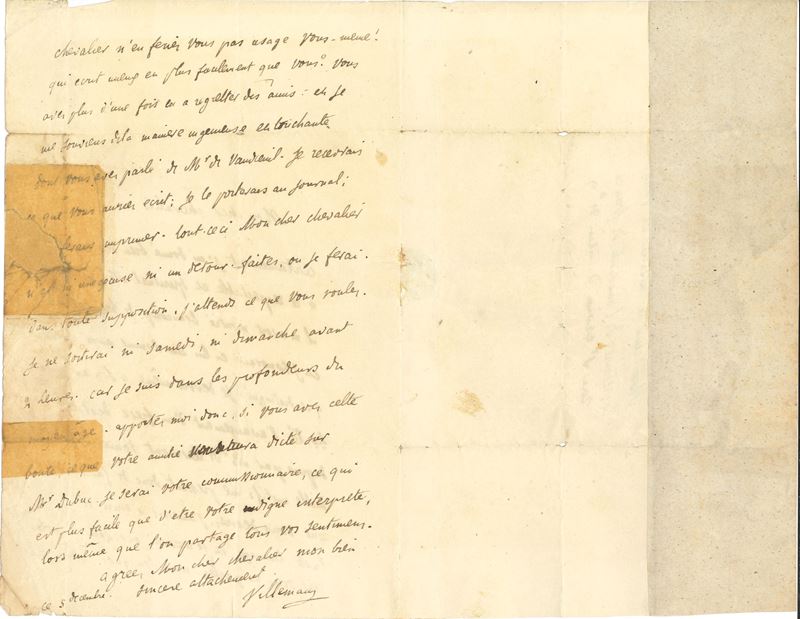 chevalier n'en feriez vous pas usage vous-même!
qui ecrit mieux et plus facilement que vous? vous
avez plus d'une fois eu a regretter des amis: et je
me souviens de la maniere ingenieuse et touchante
dont vous avez parlé de Mr de Vaudreuil. Je recevrais
ce que vous auriez ecrit; je le porterais au journal;
ferais imprimer. tout-ceci Mon cher chevalier
n'est ni une excuse ni un detour. faites, ou je ferai.
dans toute supposition, j'attends ce que vous voulez.
je ne sortirai ni samedi, ni dimarche avant
2 heures. car je suis dans les profondeurs du
moyen âge. apportez moi donc, si vous avez cette
bonté, ce que votre amitié aura dicté sur
Mr Dubuc. je serai votre commissionnaire, ce qui
est plus facile que d'etre votre digne interprete,
lors même que l'on partage tous vos sentimens.
agréez Mon cher chevalier mon bien
sincere attachement
ce 5 decembre.
Villemain